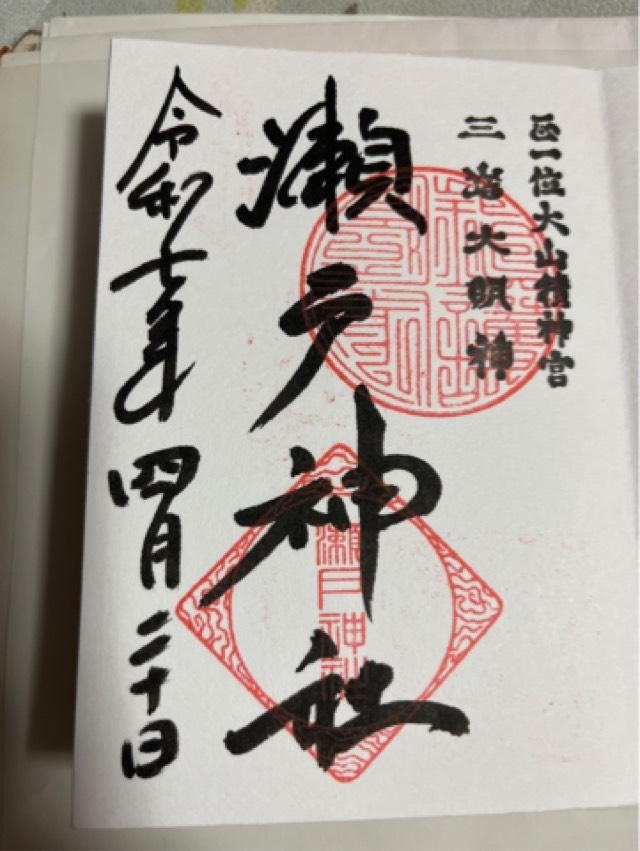 正一位大山積神宮
三嶌大明神
瀬戸神社
瀬戸神社
令和七年四月二十日